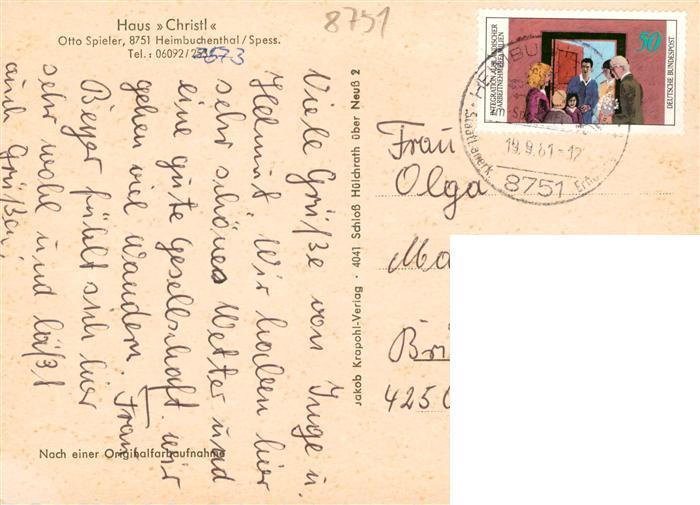 Haus »Christl«
Otto Spieler, 8751 Heimbuchenthal/Spess.
Tel.: 06092/
8573
8751
Viele Grüße von Inge u.
Helmut. Wir haben hier
sehr schönes Wetter und
eine gute Gesellschaft. wir
gehen viel Wandern. Frau
Beyer fühlt sich hier
sehr wohl und läßt
auch Grüßen.
Nach einer Originalfarbaufnahme
Jakob Krapohl-Verlag · 4041 Schloß Hülchrath über Neuß 2
INTEGRATION AUSLÄNDISCHER
ARBEITNEHMERFAMILIEN
50
DEUTSCHE BUNDESPOST
19.9.81-12
8751
Staatl. anerk.
Frau
Olga
Ma
Br
4250